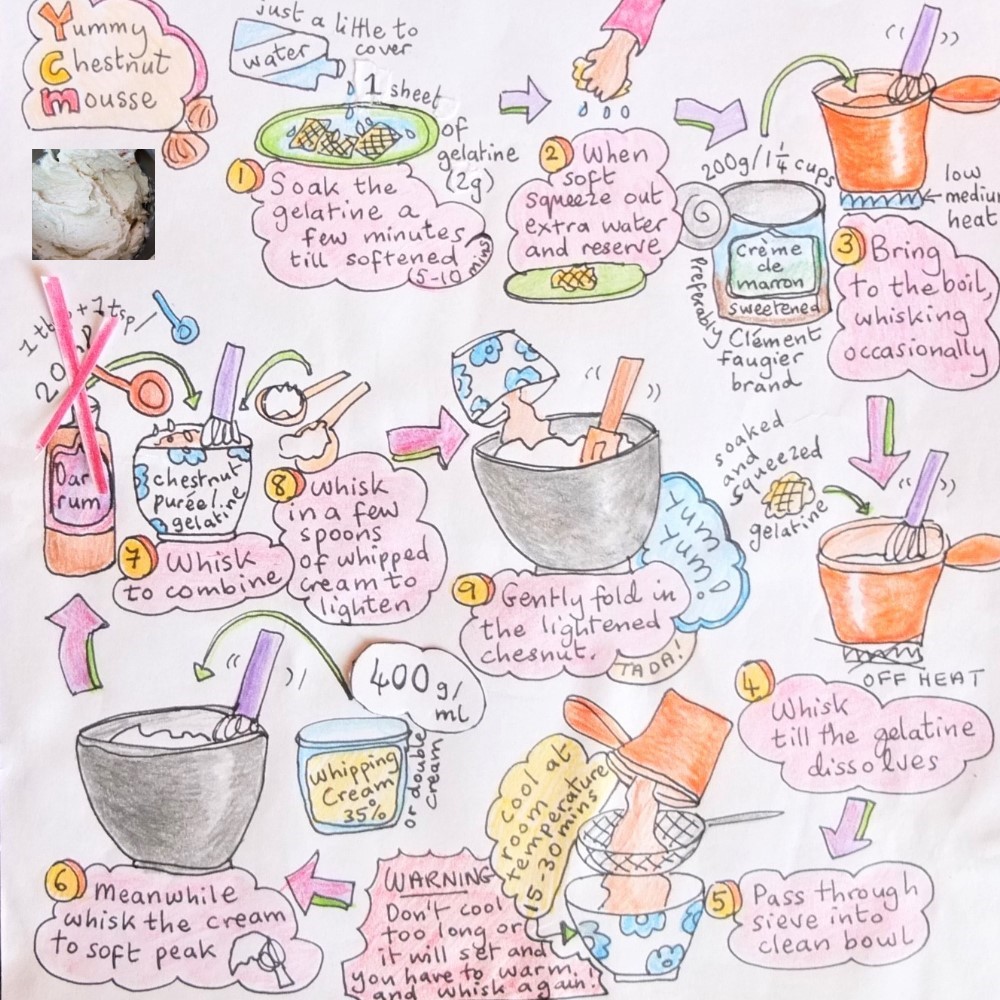 Yummy
Chestnut
Mousse
just a little to
cover
water
1 sheet
of
gelatine
(2g)
1 Soak the
gelatine a
few minutes
till softened
(5-10 mins)
2 When
soft
squeeze out
extra water
and reserve
200g/1¼ cups
Crème
de
marron
sweetened
Preferably
Clément
faugier
brand
low
medium
heat
3 Bring
to the boil,
whisking
occasionally
soaked
and
squeezed
gelatine
OFF HEAT
4 Whisk
till the gelatine
dissolves
5 Pass through
sieve into
clean bowl
cool at
room
temperature
15-30 mins
WARNING
Don't cool
too long or
it will set and
you have to warm
and whisk again!
6 Meanwhile
whisk the cream
to soft peak
400g/
ml
Whipping
Cream
35%
or double
cream
+1tsp
rum
chestnut
purée/
gelatine
7 Whisk
to combine
8 Whisk
in a few
spoons
of whipped
cream to
lighten
9 Gently fold in
the lightened
chesnut.
Yum
Yum!
TADA!